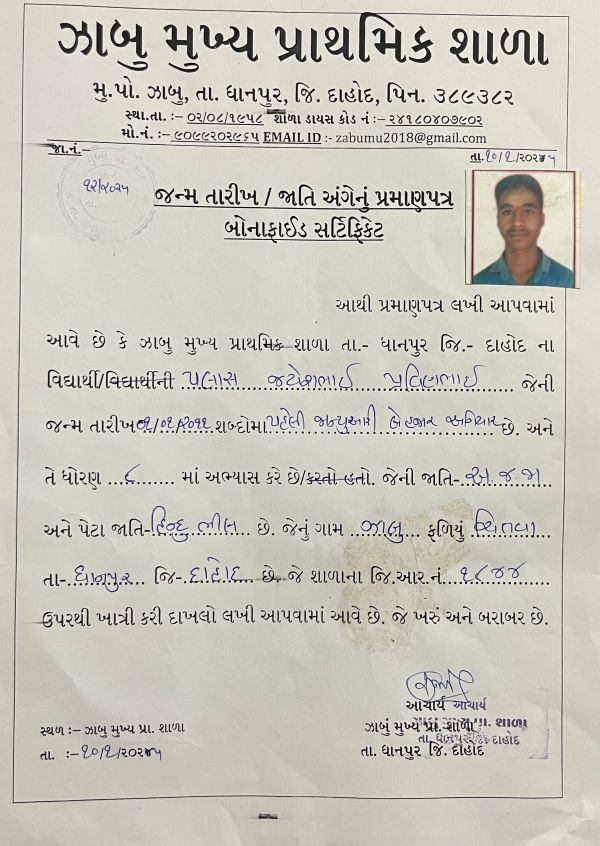 ઝાબુ મુખ્ય પ્રાથમિક શાળા
મુ.પો. ઝાબુ, તા. ધાનપુર, જિ. દાહોદ, પિન. ૩૮૯૩૮૨
સ્થા.તા. :- ૦૨/૦૮/૧૯૫૮ શાળા ડાયસ કોડ નં :- ૨૪૧૮૦૪૦૭૯૦૨
મો.નં. :-૯૦૯૯૨૦૨૯૬૫ EMAIL ID :- zabumu2018@gmail.com
જા.નં.- તા.૧૦/૧/૨૦૨૫
૧૨/૨૦૨૫
જન્મ તારીખ / જાતિ અંગેનું પ્રમાણપત્ર
બોનાફાઈડ સર્ટિફિકેટ
આથી પ્રમાણપત્ર લખી આપવામાં
આવે છે કે ઝાબુ મુખ્ય પ્રાથમિક શાળા તા.- ધાનપુર જિ.- દાહોદ ના
વિદ્યાર્થી/વિદ્યાર્થીની પલાસ જયેશભાઈ પ્રવિણભાઈ જેની
જન્મ તારીખ ૦૧/૦૧/૨૦૧૧ શબ્દોમાં પહેલી જાન્યુઆરી બેહજાર અગિયાર છે. અને
તે ધોરણ ...૮........ માં અભ્યાસ કરે છે/કરતો હતો. જેની જાતિ-અ.જ.જા
અને પેટા જાતિ-હિન્દુ ભીલ છે. જેનું ગામ ઝાબુ ફળિયું
તા-ધાનપુર જિ-દાહોદ છે. જે શાળાના જિ.આર.નં ૧૮૪૪
ઉપરથી ખાત્રી કરી દાખલો લખી આપવામાં આવે છે. જે ખરું અને બરાબર છે.
આચાર્ય આચાર્ય
સ્થળ :- ઝાબુ મુખ્ય પ્રા. શાળા
ઝાબું મુખ્ય પ્રા. શાળા પ્રા. શાળા
તા. :-૧૦/૧/૨૦૨૫
તા. ધાનપુર જિ. દાહોદ